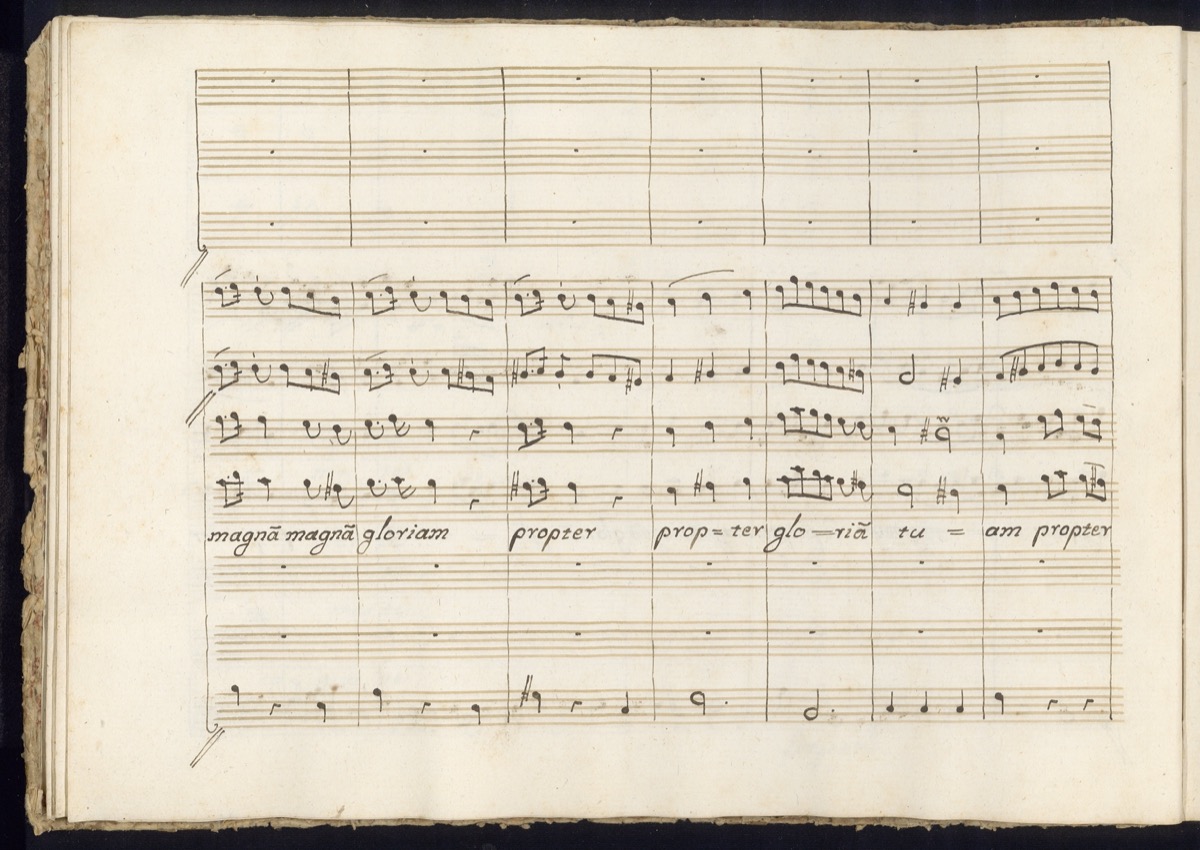 magnã magnã gloriam propter prop= ter glo—riã tu = am propter